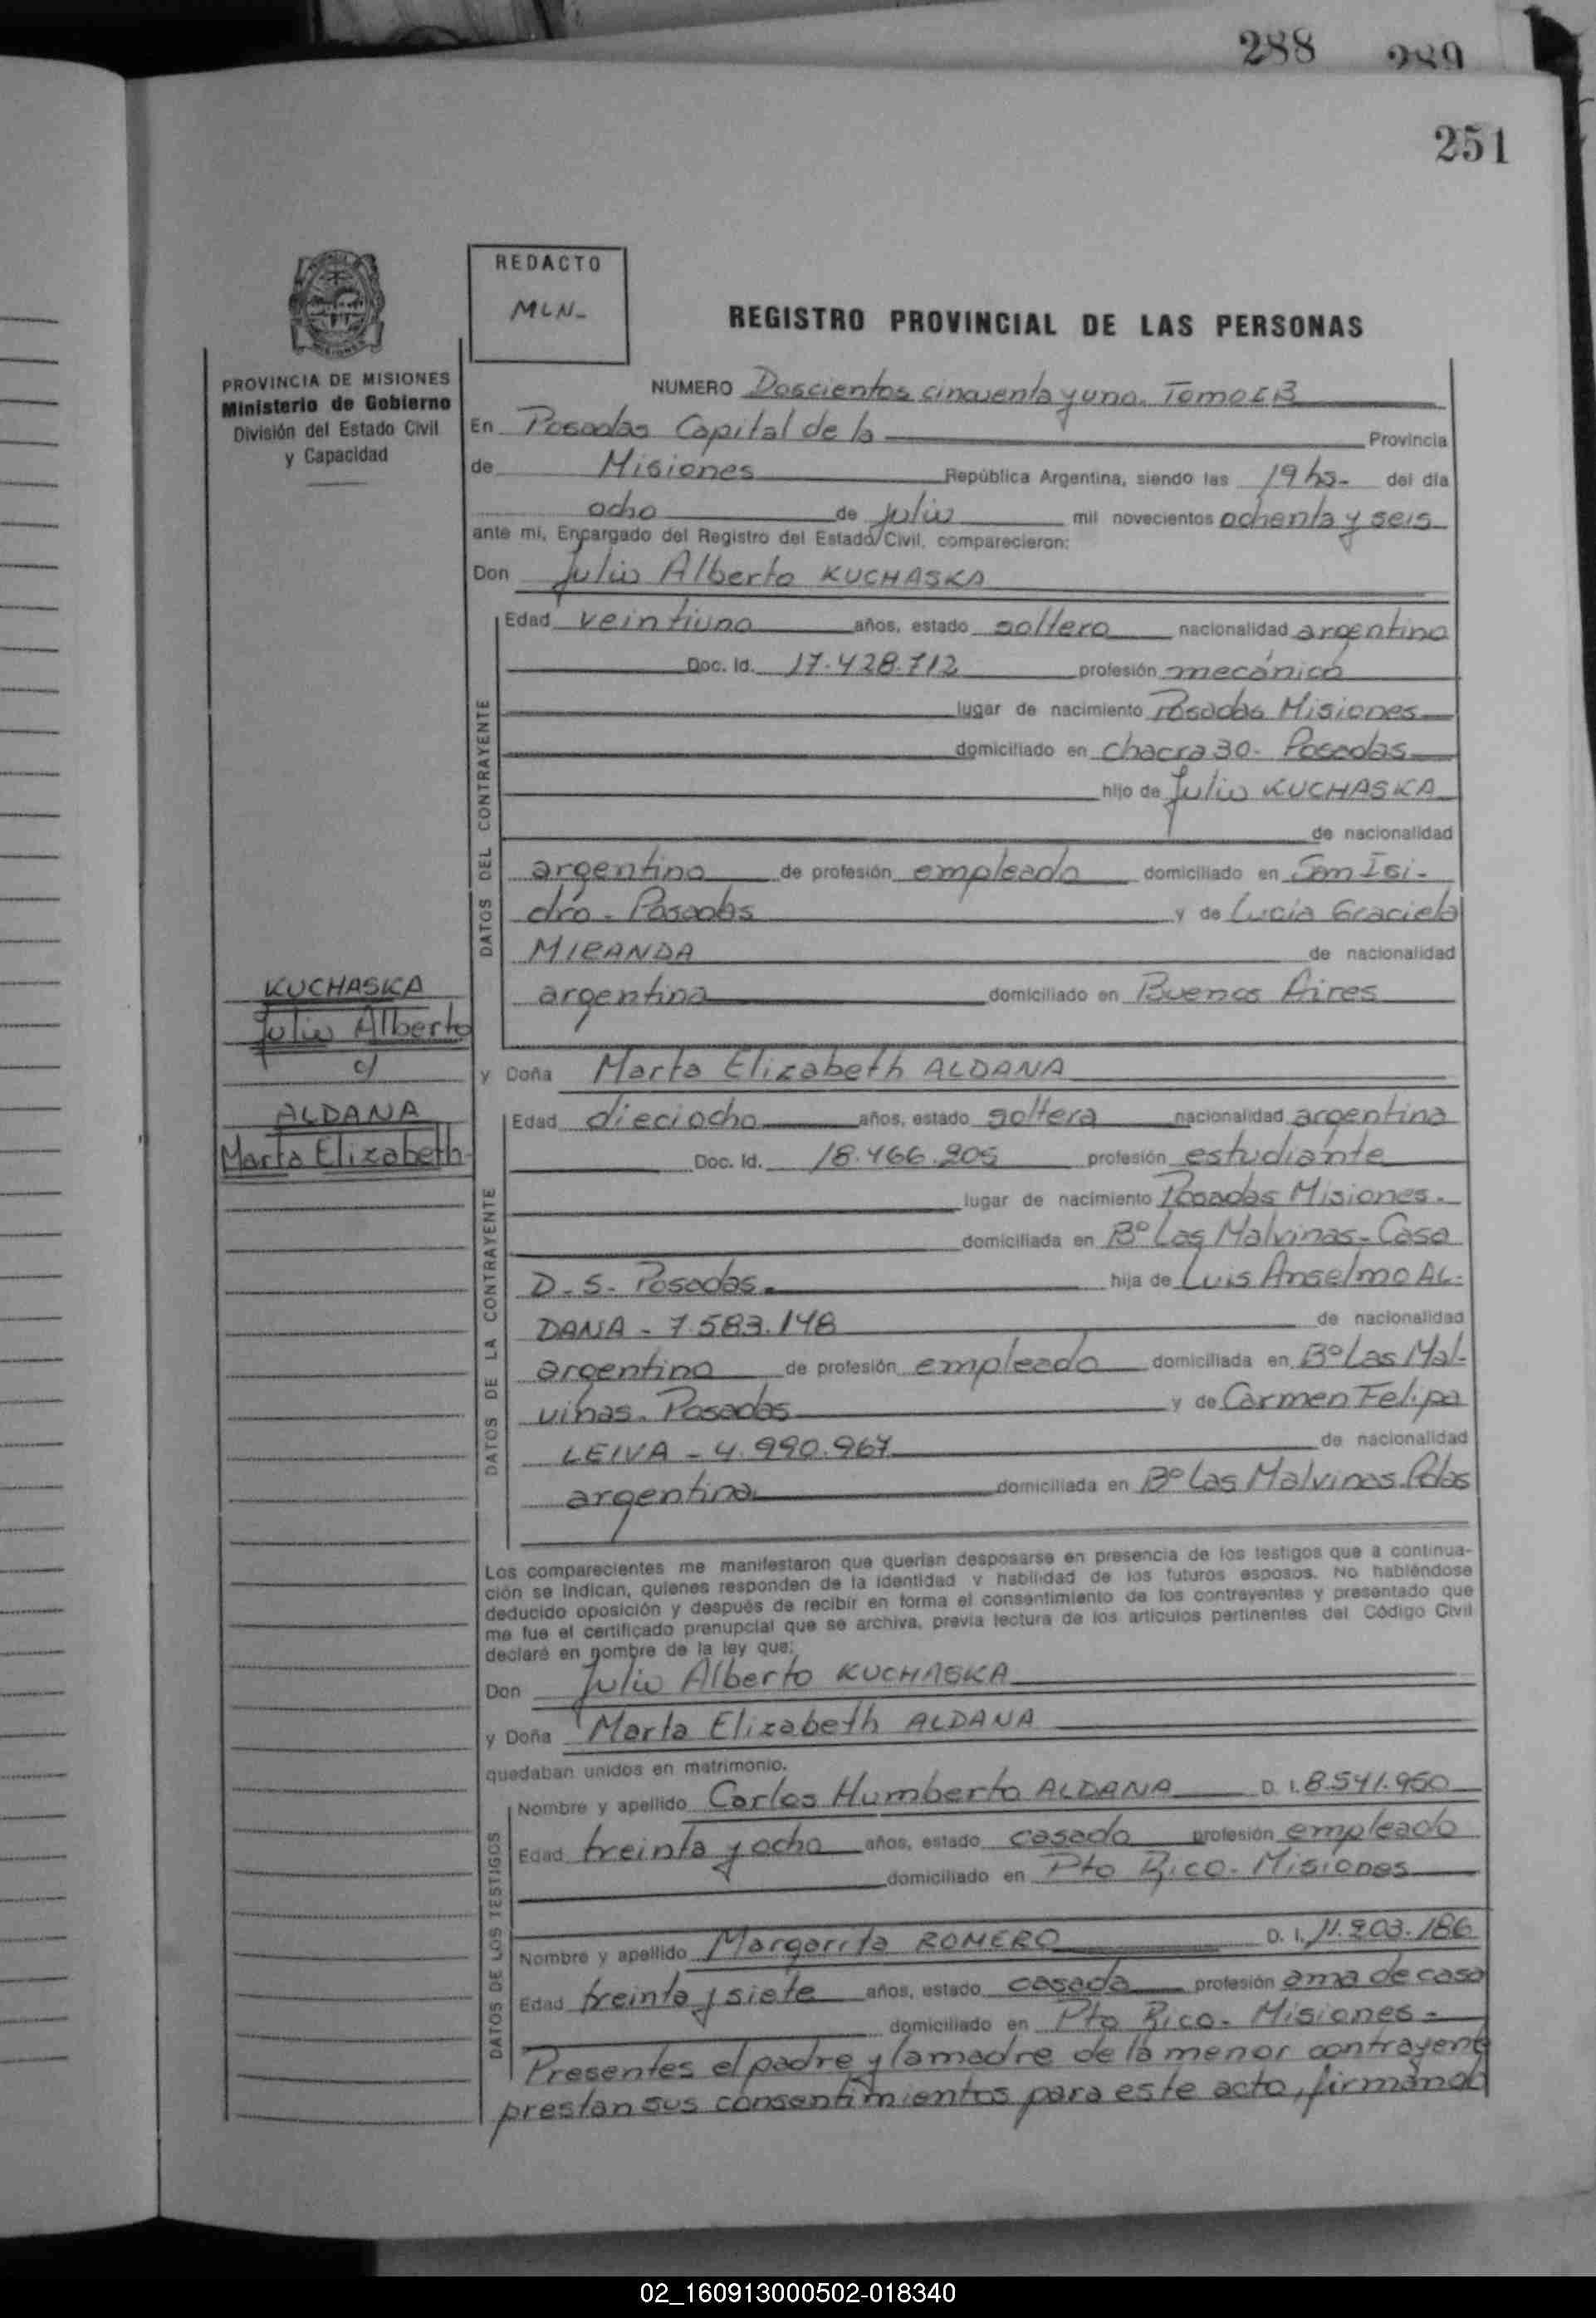 288 289
251
REDACTO
MLN-
REGISTRO PROVINCIAL DE LAS PERSONAS
PROVINCIA DE MISIONES
Ministerio de Gobierno
División del Estado Civil
y Capacidad
NUMERO Doscientos cincuenta y uno. Tomo
En Posadas Capital de la Provincia
de Misiones República Argentina, siendo las 19 hs- del día
ocho de julio mil novecientos ochenta y seis
ante mi, Encargado del Registro del Estado Civil, comparecieron:
Don Julio Alberto KUCHASKA
DATOS DEL CONTRAYENTE
Edad veintiuno años, estado soltero nacionalidad argentino
Doc. Id. 17.428.712 profesión mecánico
lugar de nacimiento Posadas Misiones
domiciliado en chacra 30- Posadas
hijo de Julio KUCHASKA
de nacionalidad
argentino de profesión empleado domiciliado en San Isi-
dro - Posadas y de Lucia Graciela
MIRANDA de nacionalidad
argentina domiciliado en Buenos Aires
KUCHASKA
Julio Alberto
c/
ALDANA
Marta Elizabeth
y Doña Marta Elizabeth ALDANA
DATOS DE LA CONTRAYENTE
Edad dieciocho años, estado soltera nacionalidad argentina
Doc. Id. 18.466.205 profesión estudiante
lugar de nacimiento Posadas Misiones.
domiciliada en B° Las Malvinas - Casa
D-5- Posadas. hija de Luis Anselmo AL-
DANA - 7.583.148 de nacionalidad
argentino de profesión empleado domiciliada en B° Las Mal-
vinas. Posadas y de Carmen Felipa
LEIVA - 4.990.967 de nacionalidad
argentina domiciliada en B° Las Malvinas. Pdas
Los comparecientes me manifestaron que querían desposarse en presencia de los testigos que a continua-
ción se indican, quienes responden de la identidad y habilidad de los futuros esposos. No habiéndose
deducido oposición y después de recibir en forma el consentimiento de los contrayentes y presentado que
me fue el certificado prenupcial que se archiva, previa lectura de los artículos pertinentes del Código Civil
declaré en nombre de la ley que:
Don Julio Alberto KUCHASKA
y Doña Marta Elizabeth ALDANA
quedaban unidos en matrimonio.
DATOS DE LOS TESTIGOS
Nombre y apellido Carlos Humberto ALDANA D. I. 8.541.950
Edad treinta y ocho años, estado casado profesión empleado
domiciliado en Pto Rico - Misiones
Nombre y apellido Margarita ROMERO D. I. 11.203.186
Edad treinta y siete años, estado casada profesión ama de casa
domiciliado en Pto Rico - Misiones -
Presentes el padre y la madre de la menor contrayente
prestan sus consentimientos para este acto, firmando
02_160913000502-018340